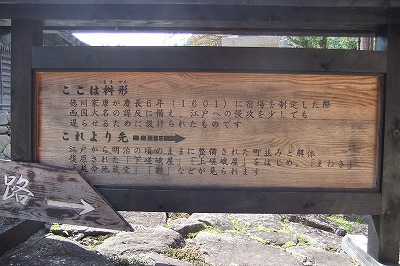 ますがた
ここは桝形
徳川家康が慶長6年(1601)に宿場を制定した際
西国大名の謀反に備え、江戸への侵攻を少しでも
遅らせるために設けられたものです
これより先
江戸から明治の頃のままに整備された町並みと解体
復原された「下嵯峨屋」「上嵯峨屋」をはじめ、「まねき」
「延命地蔵堂」「」などが見られます
路